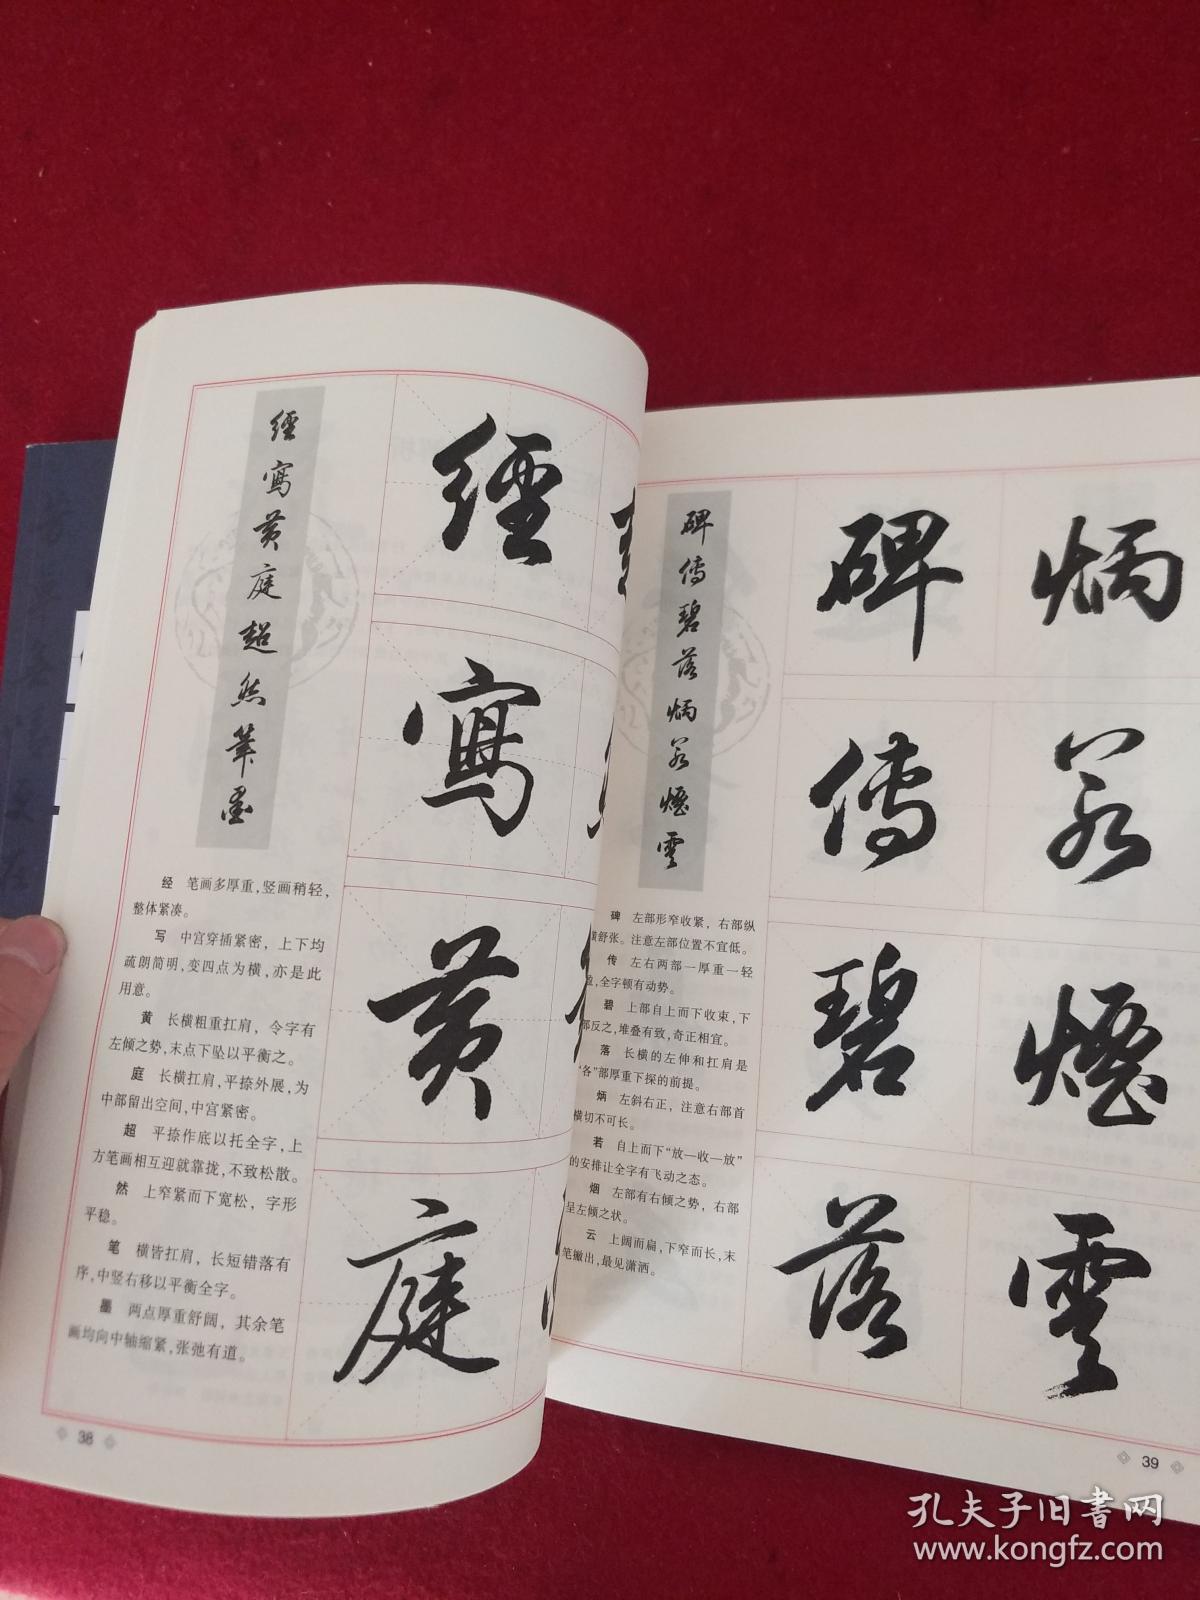 經寫黄庭超然筆墨
經
寫
黄
庭
经 笔画多厚重,竖画稍轻,
整体紧凑。
写 中宫穿插紧密,上下均
疏朗简明,变四点为横,亦是此
用意。
黄 长横粗重扛肩,令字有
左倾之势,末点下坠以平衡之。
庭 长横扛肩,平捺外展,为
中部留出空间,中宫紧密。
超 平捺作底以托全字,上
方笔画相互迎就靠拢,不致松散。
然 上窄紧而下宽松,字形
平稳。
笔 横皆扛肩,长短错落有
序,中竖右移以平衡全字。
墨 两点厚重舒阔,其余笔
画均向中轴缩紧,张弛有道。
38
碑傳碧落炳若煙雲
碑
傳
碧
落
炳
若
煙
雲
碑 左部形窄收紧,右部纵
横舒张。注意左部位置不宜低。
传 左右两部一厚重一轻
盈,全字顿有动势。
碧 上部自上而下收束,下
部反之,堆叠有致,奇正相宜。
落 长横的左伸和扛肩是
“各”部厚重下探的前提。
炳 左斜右正,注意右部首
横切不可长。
若 自上而下“放—收—放”
的安排让全字有飞动之态。
烟 左部有右倾之势,右部
呈左倾之状。
云 上阔而扁,下窄而长,末
笔撇出,最见潇洒。
39
孔夫子旧书网
www.kongfz.com